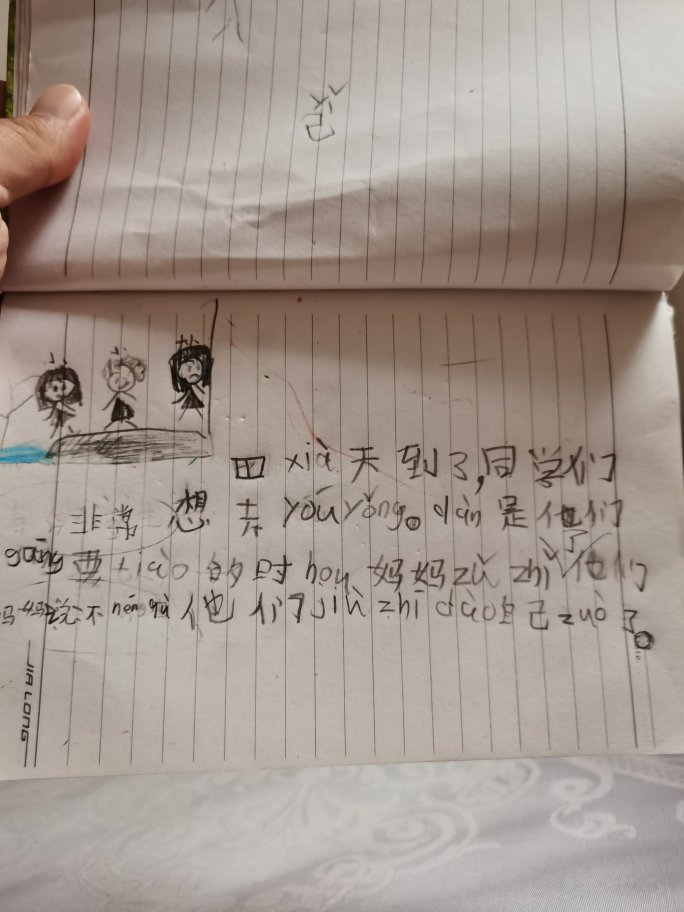 四 xià 天 到 了,同学们
非常 想 去 yóu yǒng。dàn 是 他们
gāng 要 tiào 的 时 hou 妈妈 zǔ zhǐ 了 他们
妈妈说不 néng qù 他们 jiù zhī dào 自己 zuò 了。
JIA LONG